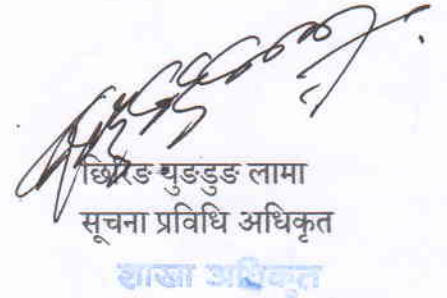 छिरिङ युङडुङ लामा
सूचना प्रविधि अधिकृत
शाखा अधिकृत